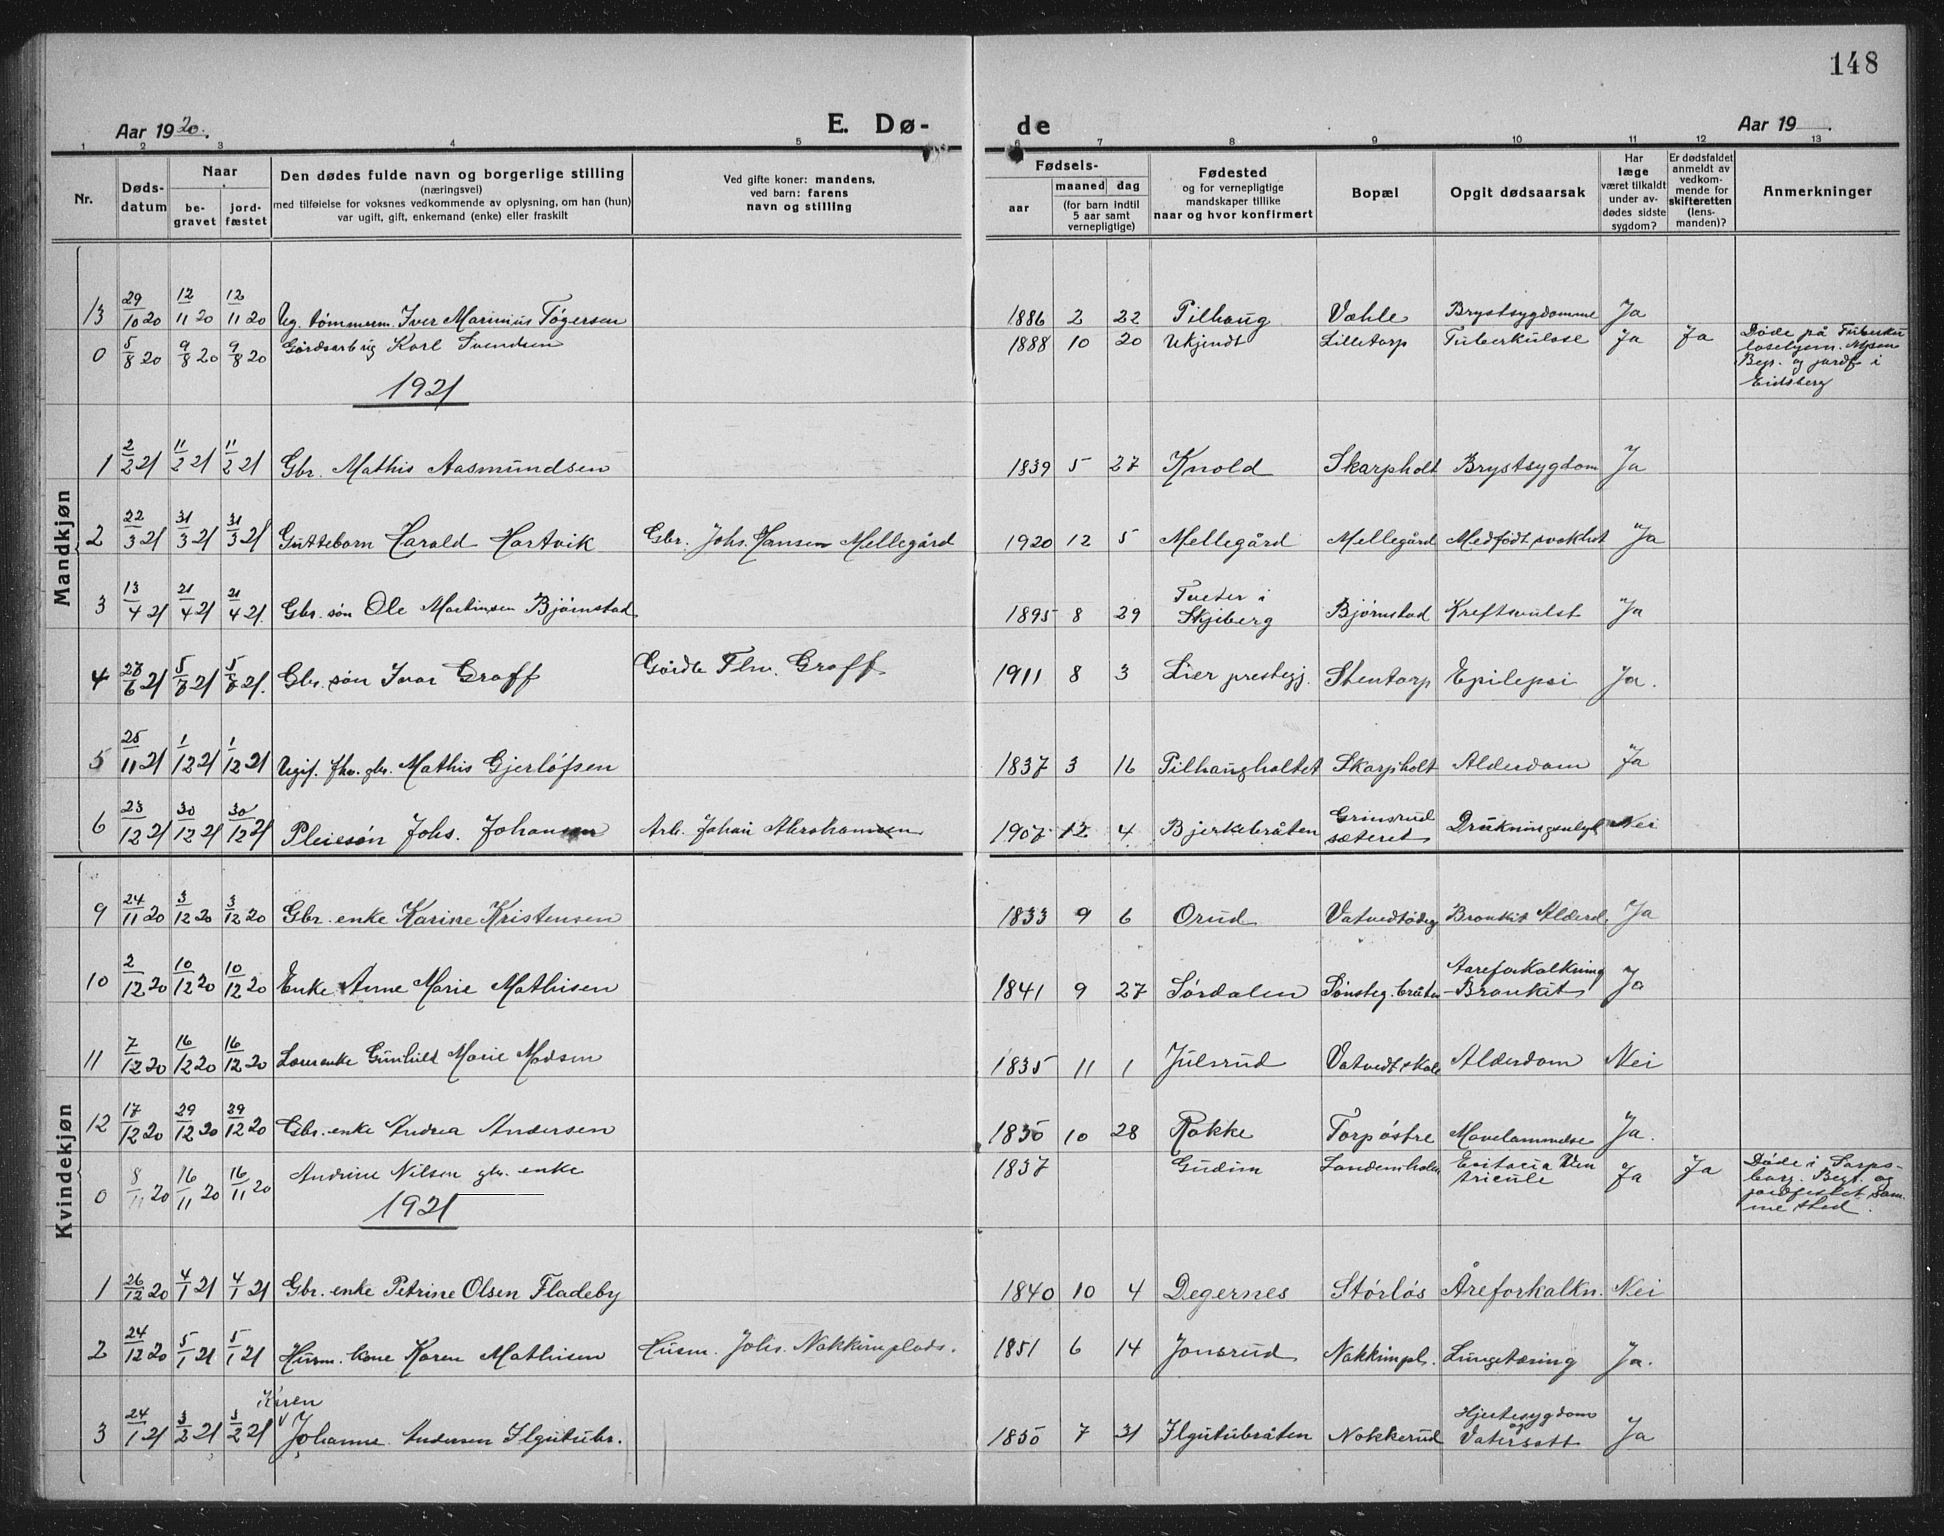 148
Aar 1920.
E. Dø-
de
Aar 19 .
1 2 3 4 5 6 7 8 9 10 11 12 13
Nr.
Døds-
datum
Naar
be-
gravet
jord-
fæstet
Den dødes fulde navn og borgerlige stilling
(næringsvei)
med tilføielse for voksnes vedkommende av oplysning, om han (hun)
var ugift, gift, enkemand (enke) eller fraskilt
Ved gifte koner: mandens,
ved barn: farens
navn og stilling
Fødsels-
aar
maaned dag
(for barn indtil
5 aar samt
vernepligtige)
Fødested
og for vernepligtige
mandskaper tillike
naar og hvor konfirmert
Bopæl
Opgit dødsaarsak
Har
læge
været tilkaldt
under av-
dødes sidste
sygdom?
Er dødsfaldet
anmeldt av
vedkom-
mende for
skifteretten
(lens-
manden)?
Anmerkninger
Mandkjøn
13 29/10 20 12/11 20 12/11 20 Ug. tømmerm. Iver Marinius Tøgersen 1886 2 22 Pilhaug Væhle Brystsygdomme Ja
0 5/8 20 9/8 20 9/8 20 Gårdsarb. ug Karl Svendsen 1888 10 20 Ukjendt Lilletorp Tuberkulose Ja Ja Døde på Tuberku
losehjem. Mysen
Begr. og jordf. i
Eidsberg
1921
1 2/2 21 11/2 21 11/2 21 Gbr. Mathis Aasmundsen 1839 5 27 Knold Skarpholt Brystsygdom Ja
2 22/3 21 31/3 21 31/3 21 Guttebarn Harald Hartvik Gbr. Johs. Hansen Mellegård 1920 12 5 Mellegård Mellegård Medfødt svakhet Ja
3 13/4 21 21/4 21 21/4 21 Gbr. søn Ole Martinsen Bjørnstad 1895 8 29 Tveter i
Skjeberg Bjørnstad Kreftsvulst Ja
4 27/6 21 5/7 21 5/7 21. Gbr. søn Ivar Graff Gårdb. Thv. Graff 1911 8 3 Lier prestegj. Stentorp Epilepsi Ja.
5 25/11 21 1/12 21 1/12 21 Ugif. fhv. gbr. Mathis Gjerløfsen 1837 3 16 Pilhaugholtet Skarpholt Alderdom Ja
6 23/12 21 30/12 21 30/12 21 Pleiesøn Johs. Johansen Arb. Johan Abrahamsen 1907 12 4 Bjerkebråten Grinsrud
sæteret Drukningsulyk Nei
Kvindekjøn
9 24/11 20 3/12 20 3/12 20 Gbr. enke Karine Kristensen 1833 9 6 Orud Vatvedtødeg Bronkit Alderd. Ja
10 2/12 20 10/12 20 10/12 20 Enke Anne Marie Mathisen 1841 9 27 Sørdalen Sønsteg. bråten Aareforkalkning
-Bronkit Ja
11 7/12 20 16/12 20 16/12 20 Lærerenke Gunhild Marie Madsen 1835 11 1 Julsrud Vatvedt skole Alderdom Nei
12 17/12 20 29/12 20 29/12 20 Gbr. enke Andrea Andersen 1850 10 28 Rakke Torp østre Mavelammelse Ja.
0 8/11 20 16/11 20 16/11 20 Andrine Nilsen gbr. enke 1837 Gudim Sandemholm Ja Ja Døde i Sarps-
borg. Begr. og
jordfestet sam-
me sted.
1921
1 26/12 20 4/1 21 4/1 21 Gbr. enke Petrine Olsen Fladeby 1840 10 4 Degernes Størløs Åreforkalkn. Nei
2 24/12 20 5/1 21 5/1 21 Husm. kone Karen Mathisen Husm. Johs. Nakkimplads. 1851 6 14 Jonsrud Nakkimpl. Lungetæring Ja.
Karen
3 24/1 21 3/2 21 3/2 21 Johanne Andersen Ilgutubr. 1850 7 31 Ilgutubråten Nakkerud Hjertesygdom
og
Vatersott Ja